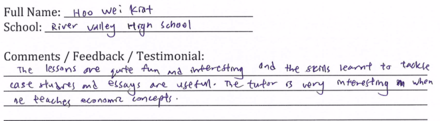 Full Name: Hoo Wei Kiat
School: River Valley High School
Comments / Feedback / Testimonial:
The lessons are quite fun and interesting and the skills learnt to tackle
case studies and essays are useful. The tutor is very interesting when
he teaches economic concepts.